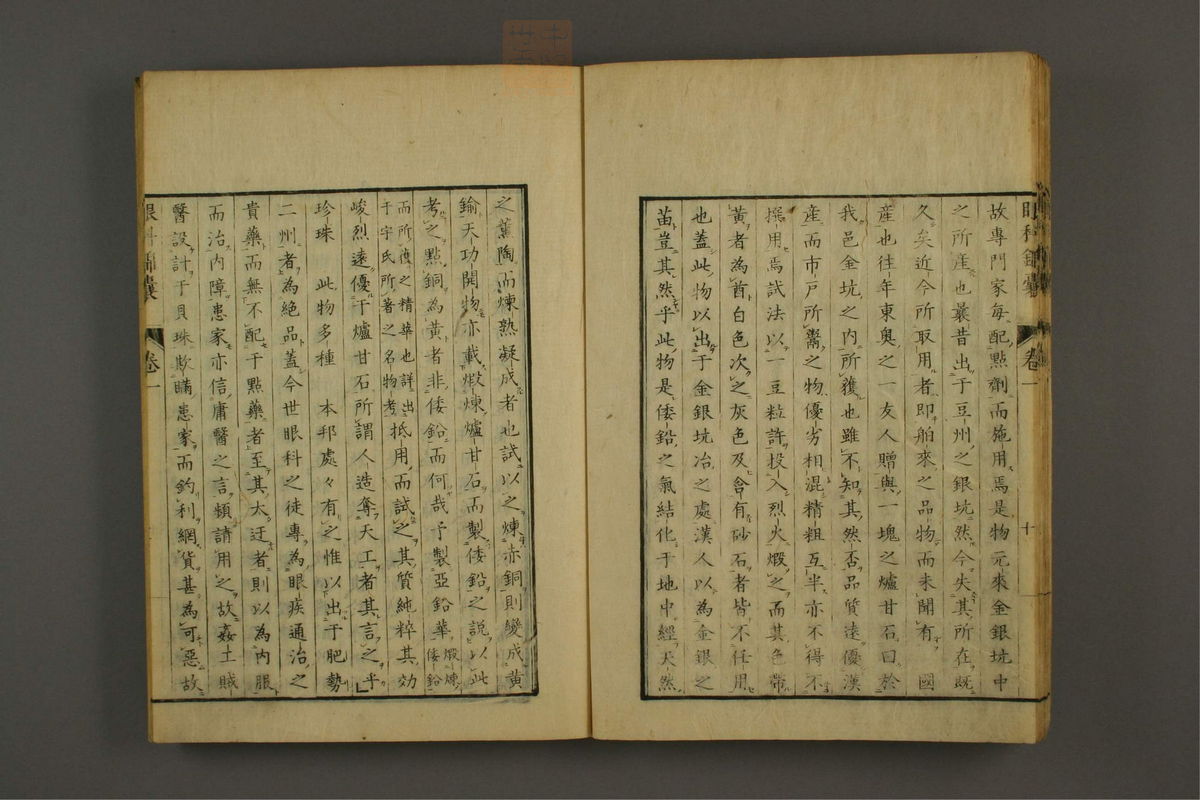 眼科錦囊 卷一 十
故專門家每配點劑而施用焉是物元來金銀坑中
之所産也曩昔出于豆州之銀坑然今失其所在既
久矣近今所取用者即舶來之品物而未聞有國
産也往年東奧之一友人贈與一塊之爐甘石曰於
我邑金坑之内所獲也雖不知其然否品質遠優漢
産而市戸所鬻之物優劣相混精粗互半亦不得不
撰用焉試法以一豆粒許投入烈火煅之而其色帶
黄者為酋白色次之灰色及含有砂石者皆不任用
也蓋此物以出于金銀坑冶之處漢人以為金銀之
苗豈其然乎此物是倭鉛之氣結化于地中經天然
之薫陶而煉熟凝成者也試以之煉赤銅則變成黄
鍮天功開物亦載煅煉爐甘石而製倭鉛之説以此
考之點銅為黄者非倭鉛而何哉予製亞鉛華煅煉倭鉛
而所獲之精華也詳出于宇氏所著之名物考抵用而試之其質純粹其効
峻烈遠優于爐甘石所謂人造奪天工者其言之乎
珍珠 此物多種 本邦處々有之惟以出于肥勢
二州者為絶品蓋今世眼科之徒專為眼疾通治之
貴藥而無不配于點藥者至其太迂者則以為内服
而治内障患家亦信庸醫之言頻請用之故姦士賊
醫設計于貝珠欺瞞患家而釣利網貨甚為可惡故
眼科錦囊 卷一